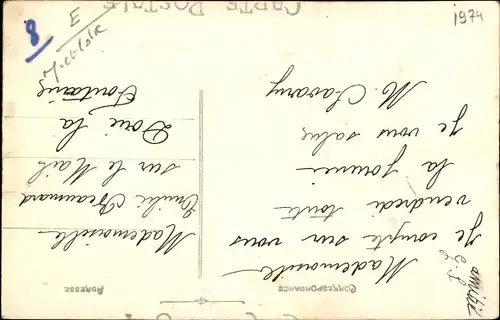 CARTE POSTALE
1974
8
E
CORRESPONDANCE
ADRESSE
Mademoiselle
Je compte sur vous
vendredi toute
la journée
Je vous salue
M. Chavany
amitié
Mademoiselle
Emilie Beaumard
sur le Mail
Doué la
Fontaine